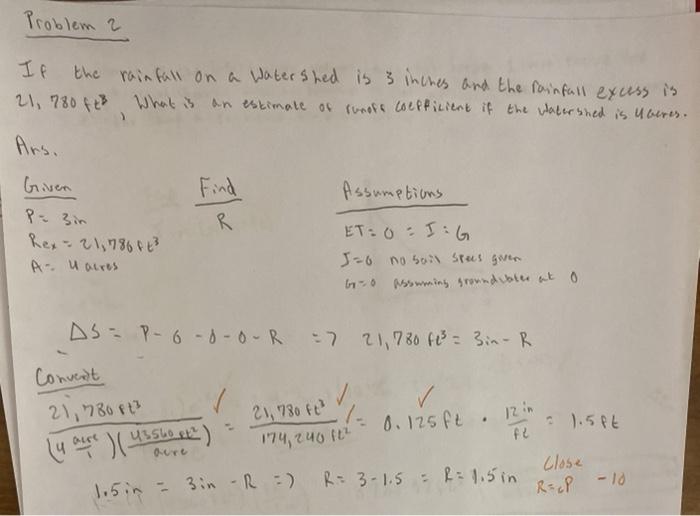 Problem 2
If the rainfall on a Watershed is 3 inches and the rainfall excess is
21,780 ft³, What is an estimate of runoff coefficient if the watershed is 4 acres.
Ans.
Given Find Assumptions
P= 3in R ET=0 = I = G
Rex = 21,780 ft³ I=0 no soil specs given
A= 4 acres G=0 assuming groundwater at 0
ΔS = P-0-0-0-R => 21,780 ft³ = 3in - R
Convert
21,780 ft³ / (4 acre/1)(43560 ft²/acre) ✓ = 21,780 ft³ / 174,240 ft² ✓ = 0.125 ft ✓ · 12 in/ft = 1.5 ft
1.5in = 3in - R => R= 3-1.5 = R=1.5in Close
R=cP -10